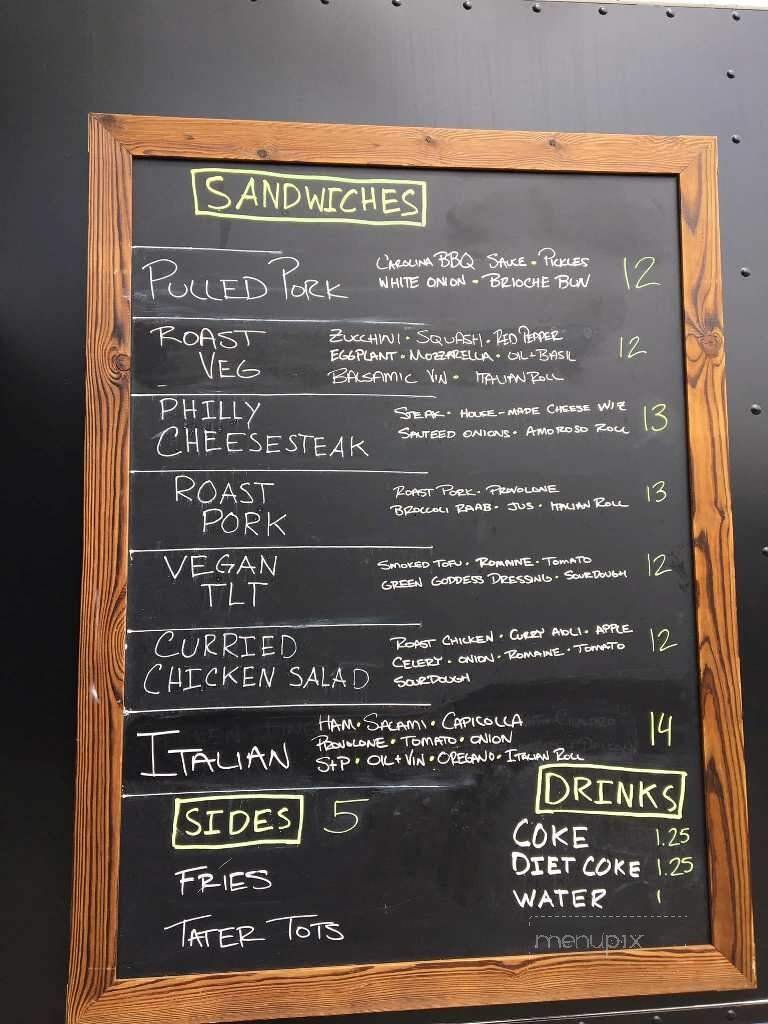 SANDWICHES
PULLED PORK
CAROLINA BBQ SAUCE • PICKLES
WHITE ONION - BRIOCHE BUN
12
ROAST
VEG
ZUCCHINI • SQUASH • RED PEPPER
EGGPLANT • MOZZARELLA • OIL + BASIL
BALSAMIC VIN • ITALIAN ROLL
12
PHILLY
CHEESESTEAK
STEAK • HOUSE-MADE CHEESE WIZ
SAUTEED ONIONS • AMOROSO ROLL
13
ROAST
PORK
ROAST PORK • PROVOLONE
BROCCOLI RAAB • JUS • ITALIAN ROLL
13
VEGAN
TLT
SMOKED TOFU • ROMAINE • TOMATO
GREEN GODDESS DRESSING • SOURDOUGH
12
CURRIED
CHICKEN SALAD
ROAST CHICKEN • CURRY AIOLI • APPLE
CELERY • ONION • ROMAINE • TOMATO
SOURDOUGH
12
ITALIAN
HAM • SALAMI • CAPICOLLA
PROVOLONE • TOMATO • ONION
S+P • OIL + VIN • OREGANO • ITALIAN ROLL
14
SIDES 5
FRIES
TATER TOTS
DRINKS
COKE 1.25
DIET COKE 1.25
WATER 1
menupix